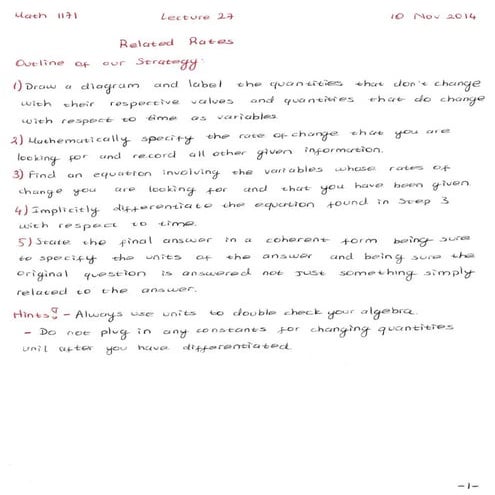 Math 1171 Lecture 27 10 Nov 2014
Related Rates
Outline of our Strategy:
1) Draw a diagram and label the quantities that don't change
with their respective values and quantities that do change
with respect to time as variables.
2) Mathematically specify the rate of change that you are
looking for and record all other given information.
3) Find an equation involving the variables whose rates of
change you are looking for and that you have been given
4) Implicitly differentiate the equation found in Step 3
with respect to time.
5) State the final answer in a coherent form being sure
to specify the units of the answer and being sure the
original question is answered not just something simply
related to the answer.
Hints! - Always use units to double check your algebra.
- Do not plug in any constants for changing quantities
unil after you have differentiated
-1-